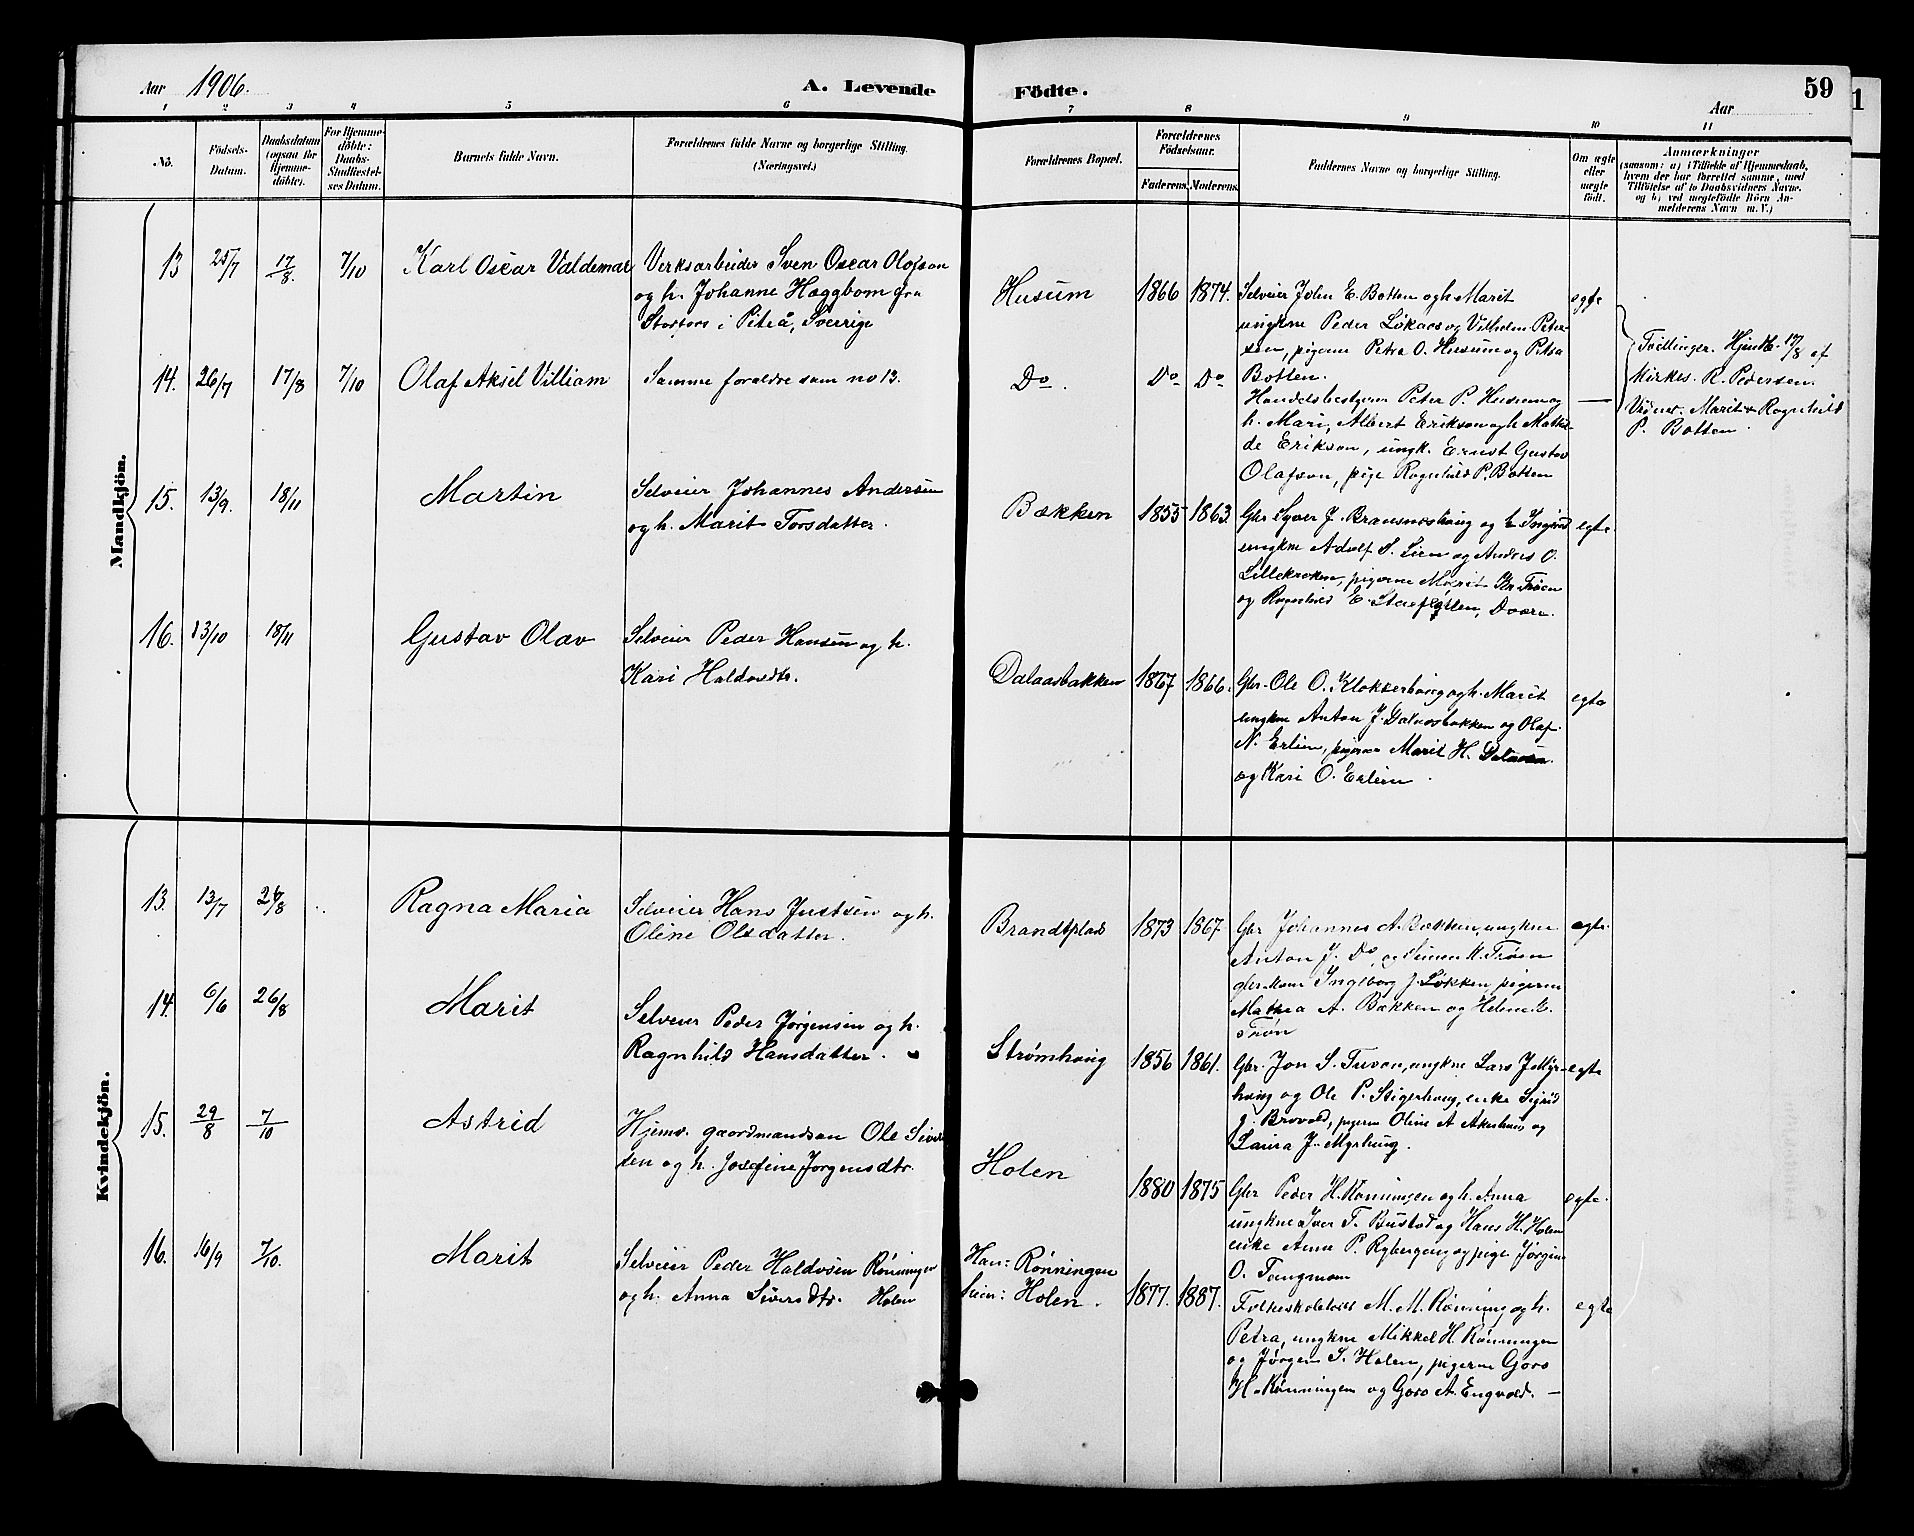 Aar 1906.
A. Levende
Födte.
Aar
59
1
1 2 3 4 5 6 7 8 9 10 11
No.
Födsels-
Datum.
Daabsdatum
(ogsaa for
Hjemme-
döbte).
For Hjemme-
döbte:
Daabs-
Stadfæstel-
ses Datum.
Barnets fulde Navn.
Forældrenes fulde Navne og borgerlige Stilling.
(Næringsvei.)
Forældrenes Bopæl.
Forældrenes
Födselsaar.
Faderens. Moderens.
Faddernes Navne og borgerlige Stilling.
Om ægte
eller
uægte
födt.
Anmærkninger
(saasom: a) i Tilfælde af Hjemmedaab,
hvem der har forrettet samme, med
Tilföielse af to Daabsvidners Navne,
og b) ved uægtefödte Börn An-
melderens Navn m. V.)
Mandkjön.
13 25/7 17/8 7/10 Karl Oscar Valdemar
Verksarbeider Sven Oscar Olofson
og h. Johanne Hæggbom fra
Storfors i Piteå, Sverrige
Husum 1866 1874.
Selveier John E. Botten og h Marit
ungkne Peder Løkaas og Vilhelm Peter-
sen, pigerne Petra O. Husum og Petra
Botten.
egte
Tvillinger. Hjmdb. 17/8 af
Kirkes. R. Pedersen.
Vidner. Marit & Ragnhild
P. Botten.
14. 26/7 17/8 7/10 Olaf Aksel Villiam
Samme foraldre som no 13.
Do. Do Do
Handelsbestyrer Peter P. Husum og
h. Mari, Albert Erikson og h Mathil-
de Erikson, ungk. Ernst Gustav
Olafson, pige Ragnhild P. Botten
—
15. 13/9. 18/11 Martin
Selveier Johannes Andersen
og h. Marit Torsdatter.
Bækken 1855 1863.
Gbr Syver J. Bransneshaug og h Ingrid
ungkne Adolf S. Lien og Anders O.
Lillekroken, pigerne Marit Kr. Trøen
og Ragnhild E. Dværn.
egte
16. 13/10 18/11 Gustav Olav
Selveier Peder Hansen og h.
Kari Haldosdtr.
Dalaasbakken 1867 1866.
Gbr. Ole O. Klokkerhaug og h. Marit
ungkne Anton J. Dalaasbakken og Olaf
N. Erlien, pigerne Marit H. Dalaasen
og Kari O. Erlien.
egte
Kvindekjön.
13. 13/7 26/8 Ragna Maria
Selveier Hans Justsen og h.
Oline Olsdatter.
Brandtplads 1873 1867
Gbr Johannes A. Bækken, ungkne
Anton J. Do, og Simen K. Trøen
gbr. kone Ingeborg J. Løkken pigerne
Mathea A. Bækken og Helene E.
Trøn
egte.
14. 6/6 26/8 Marit
Selveier Peder Jørgensen og h.
Ragnhild Hansdatter.
Strømhaug 1856 1861.
Gbr. Jon S. Tuvan, ungkne Lars J. Myr-
haug og Ole P. Stigerhaug, enke Sigrid
J. Brovold, pigerne Oline A Akerhaug og
Laura J. Myrhaug.
egte
15. 29/8 7/10 Astrid
Hjemv. gaardmandsøn Ole Siver-
sen og h. Josefine Jørgensdtr.
Holen 1880 1875
Gbr Peder H. Rønningen og h. Anna
ungkne Iver T. Bustad og Hans H. Holen
enke Anne P. Rybergaug og pige Jørgine
O. Tangmoen
egte.
16. 16/9 7/10. Marit
Selveier Peder Haldosen Rønningen
og h. Anna Siversdtr. Holen
Han: Rønningen
Sien: Holen.
1877. 1887.
Folkeskolelær M. M. Rønning og h.
Petra, ungkne Mikkel H. Rønningen
og Jørgen S. Holen, pigerne Goro
H. Rønningen og Goro A. Engvold. —
egte